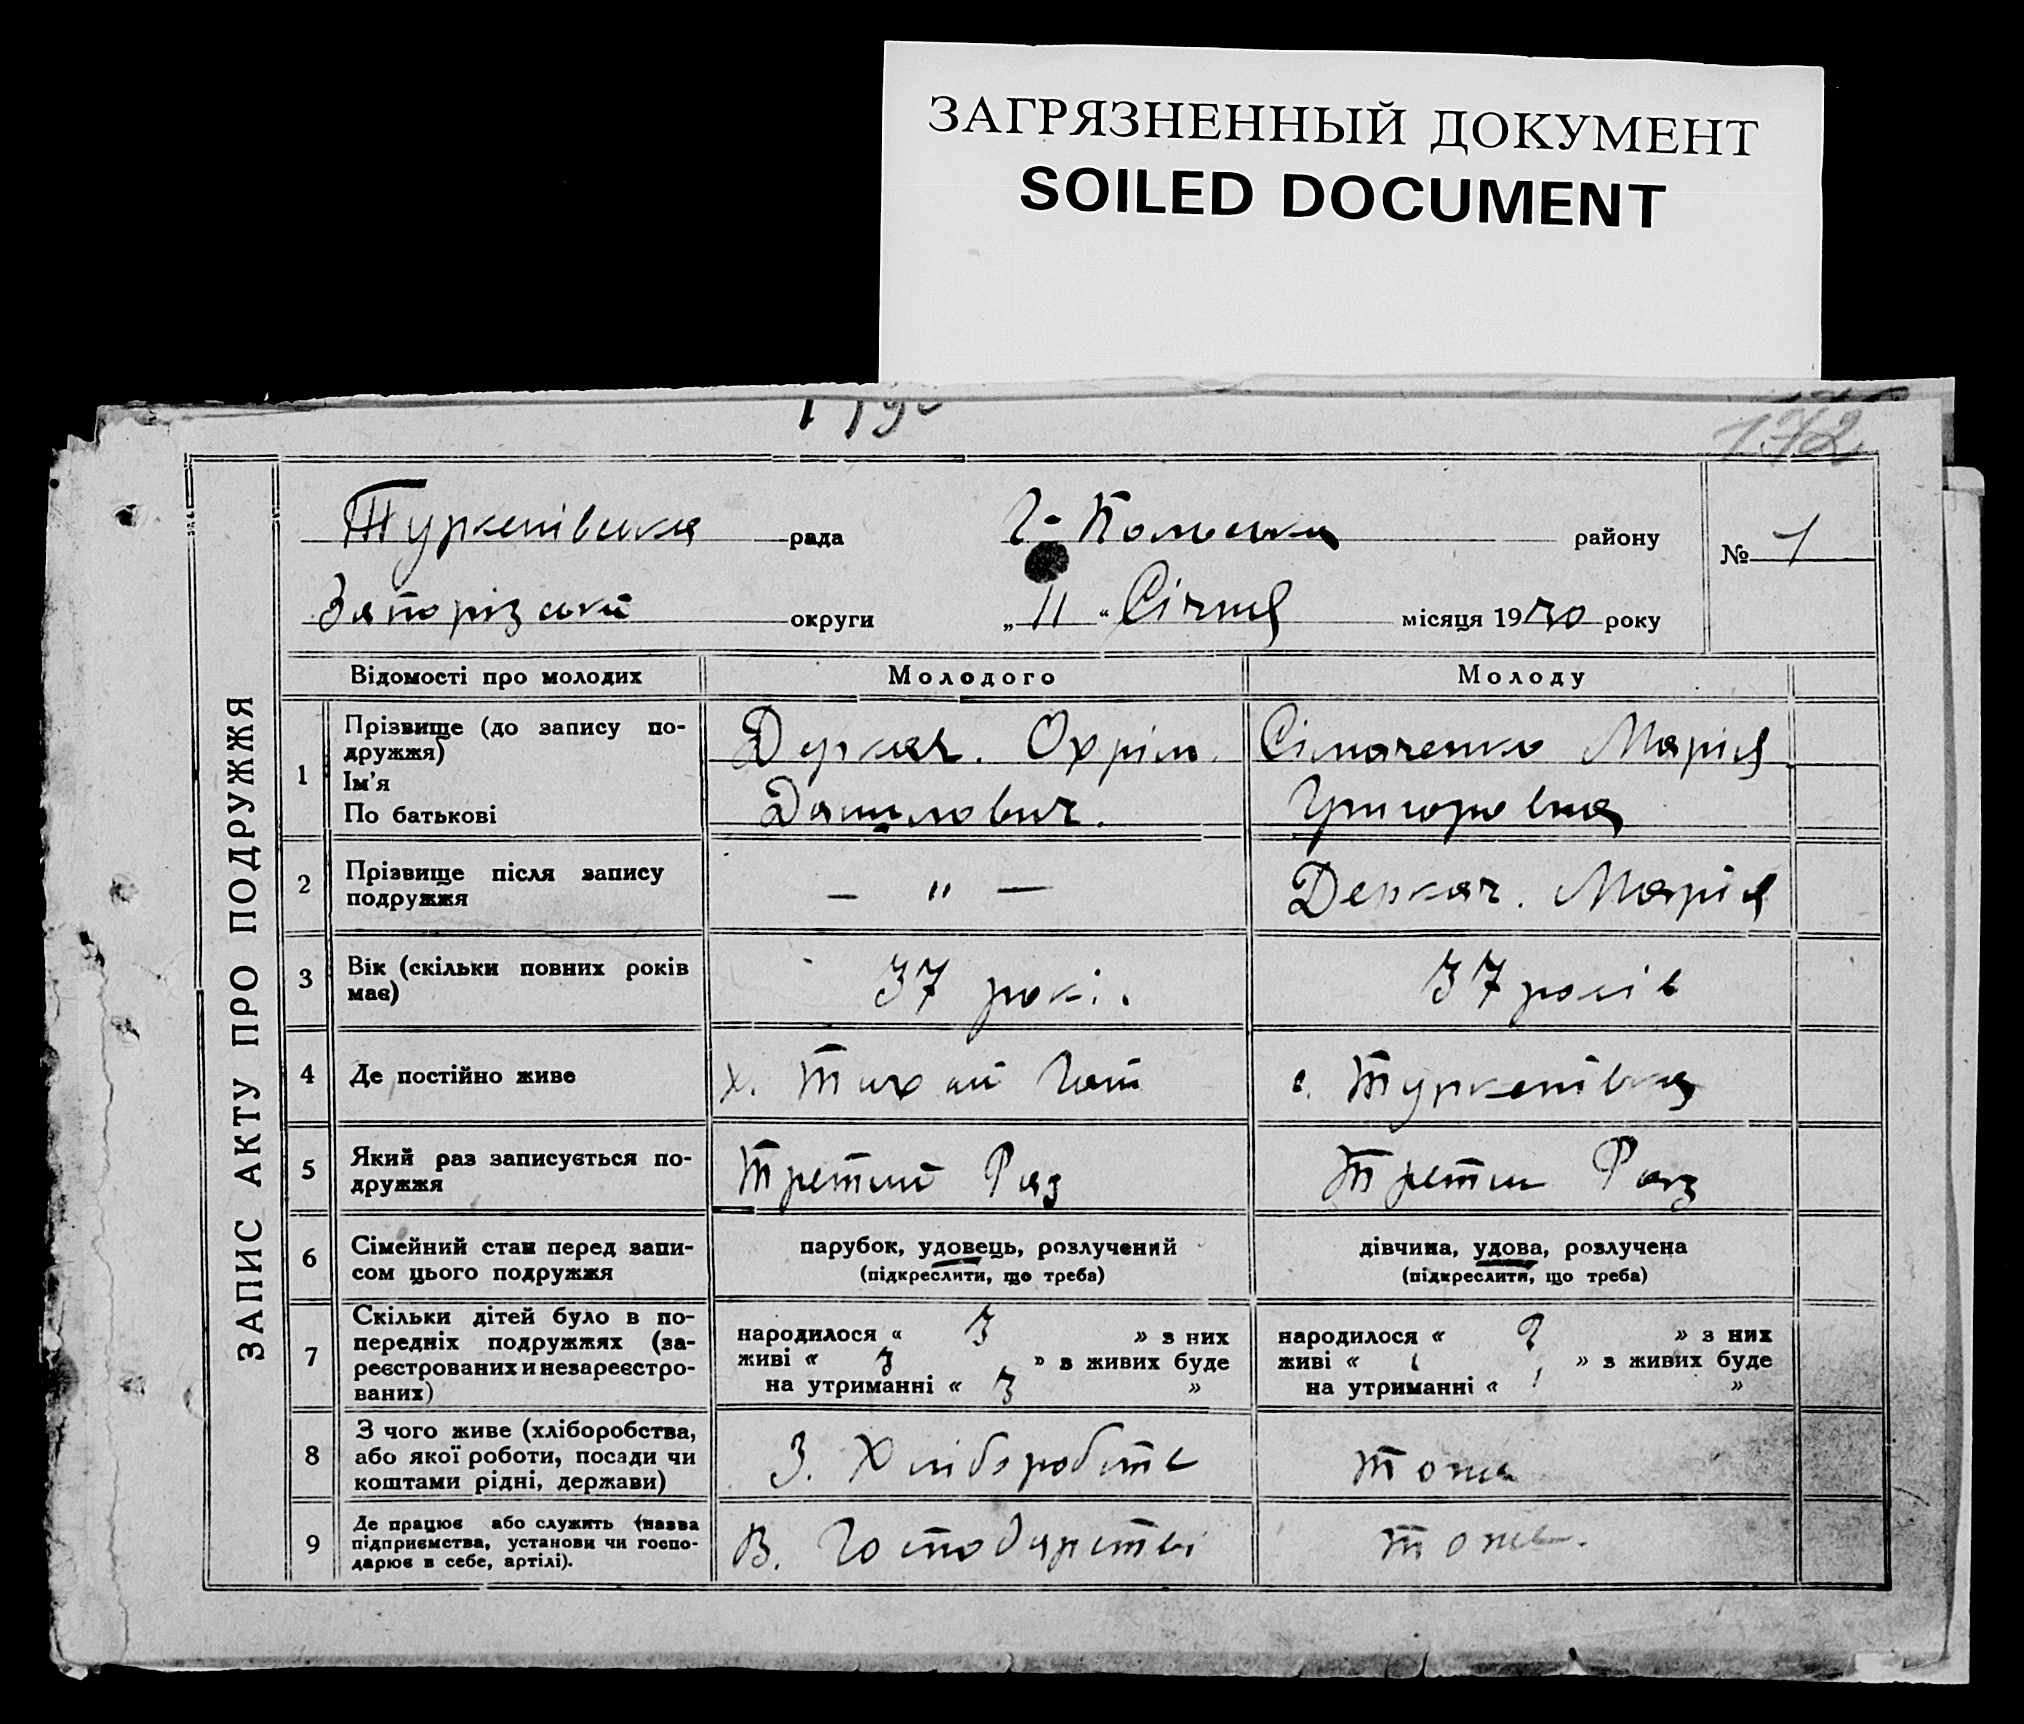 ЗАГРЯЗНЕННЫЙ ДОКУМЕНТ
SOILED DOCUMENT
172
ЗАПИС АКТУ ПРО ПОДРУЖЖЯ
Туркенівська рада Г-Польська району № 1
Запорізькй округи „ 11 “ Січня місяця 19 року
Відомості про молодих Молодого Молоду
1 Прізвище (до запису по-
дружжя)
Ім’я
По батькові
Деркач. Охрім.
Данилович.
Сімаченко Марія
Григоровна
2 Прізвище після запису
подружжя
— " —
Деркач. Марія
3 Вік (скільки повних років
має)
37 рокі.
37 років
4 Де постійно живе
х. Тихий Гай
с. Туркенівка
5 Який раз записується по-
дружжя
Третий Раз
Трети Раз
6 Сімейний стан перед запи-
сом цього подружжя
парубок, удовець, розлучений
(підкреслити, що треба)
дівчина, удова, розлучена
(підкреслити, що треба)
7 Скільки дітей було в по-
передніх подружжях (за-
реєстрованих и незареєстро-
ваних)
народилося « 3 » з них
живі « 3 » з живих буде
на утриманні « 3 »
народилося « » з них
живі « » з живих буде
на утриманні « »
8 З чого живе (хліборобства,
або якої роботи, посади чи
коштами рідні, держави)
З. Хліборобств
тоже
9 Де працює або служить (назва
підприємства, установи чи госпо-
дарює в себе, артілі).
В. Господарстві
тоже.